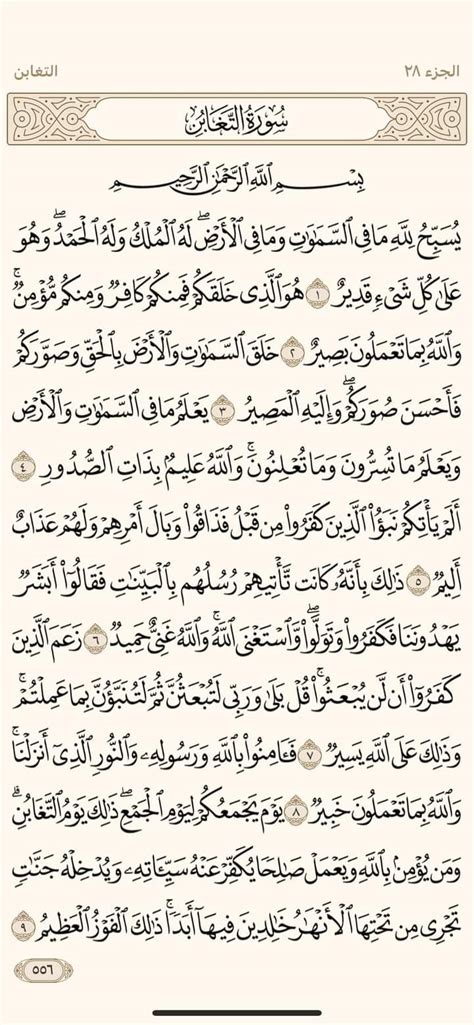 الجزء ٢٨ التغابن
سُورَةُ التَّغَابُنِ
بِسْمِ ٱللَّهِ ٱلرَّحْمَٰنِ ٱلرَّحِيمِ
يُسَبِّحُ لِلَّهِ مَا فِى ٱلسَّمَٰوَٰتِ وَمَا فِى ٱلْأَرْضِ ۖ لَهُ ٱلْمُلْكُ وَلَهُ ٱلْحَمْدُ ۖ وَهُوَ
عَلَىٰ كُلِّ شَىْءٍ قَدِيرٌ ١ هُوَ ٱلَّذِى خَلَقَكُمْ فَمِنكُمْ كَافِرٌ وَمِنكُم مُّؤْمِنٌ ۚ
وَٱللَّهُ بِمَا تَعْمَلُونَ بَصِيرٌ ٢ خَلَقَ ٱلسَّمَٰوَٰتِ وَٱلْأَرْضَ بِٱلْحَقِّ وَصَوَّرَكُمْ
فَأَحْسَنَ صُوَرَكُمْ ۖ وَإِلَيْهِ ٱلْمَصِيرُ ٣ يَعْلَمُ مَا فِى ٱلسَّمَٰوَٰتِ وَٱلْأَرْضِ
وَيَعْلَمُ مَا تُسِرُّونَ وَمَا تُعْلِنُونَ ۚ وَٱللَّهُ عَلِيمٌۢ بِذَاتِ ٱلصُّدُورِ ٤
أَلَمْ يَأْتِكُمْ نَبَؤُا۟ ٱلَّذِينَ كَفَرُوا۟ مِن قَبْلُ فَذَاقُوا۟ وَبَالَ أَمْرِهِمْ وَلَهُمْ عَذَابٌ
أَلِيمٌ ٥ ذَٰلِكَ بِأَنَّهُۥ كَانَت تَّأْتِيهِمْ رُسُلُهُم بِٱلْبَيِّنَٰتِ فَقَالُوٓا۟ أَبَشَرٌ
يَهْدُونَنَا فَكَفَرُوا۟ وَتَوَلَّوا۟ ۚ وَّٱسْتَغْنَى ٱللَّهُ ۚ وَٱللَّهُ غَنِىٌّ حَمِيدٌ ٦ زَعَمَ ٱلَّذِينَ
كَفَرُوٓا۟ أَن لَّن يُبْعَثُوا۟ ۚ قُلْ بَلَىٰ وَرَبِّى لَتُبْعَثُنَّ ثُمَّ لَتُنَبَّؤُنَّ بِمَا عَمِلْتُمْ ۚ
وَذَٰلِكَ عَلَى ٱللَّهِ يَسِيرٌ ٧ فَـَٔامِنُوا۟ بِٱللَّهِ وَرَسُولِهِۦ وَٱلنُّورِ ٱلَّذِىٓ أَنزَلْنَا ۚ
وَٱللَّهُ بِمَا تَعْمَلُونَ خَبِيرٌ ٨ يَوْمَ يَجْمَعُكُمْ لِيَوْمِ ٱلْجَمْعِ ۖ ذَٰلِكَ يَوْمُ ٱلتَّغَابُنِ ۗ
وَمَن يُؤْمِنۢ بِٱللَّهِ وَيَعْمَلْ صَٰلِحًا يُكَفِّرْ عَنْهُ سَيِّـَٔاتِهِۦ وَيُدْخِلْهُ جَنَّٰتٍ
تَجْرِى مِن تَحْتِهَا ٱلْأَنْهَٰرُ خَٰلِدِينَ فِيهَآ أَبَدًا ۚ ذَٰلِكَ ٱلْفَوْزُ ٱلْعَظِيمُ ٩
٥٥٦